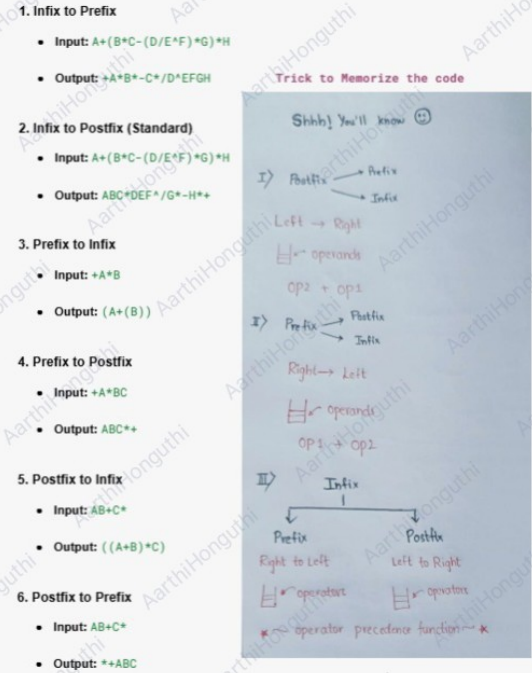 1. Infix to Prefix
Input: A+(B*C-(D/E^F)*G)*H
Output: +A*B*-C*/D^EFGH
2. Infix to Postfix (Standard)
Input: A+(B*C-(D/E^F)*G)*H
Output: ABC*DEF^/G*-H*+
3. Prefix to Infix
Input: +A*B
Output: (A+(B))
4. Prefix to Postfix
Input: +A*BC
Output: ABC*+
5. Postfix to Infix
Input: AB+C*
Output: ((A+B)*C)
6. Postfix to Prefix
Input: AB+C*
Output: *+ABC
Trick to Memorize the code
Shhh! You'll know
I) Postfix → Prefix
→ Infix
Left → Right
operands
OP2 + OP1
II) Prefix → Postfix
→ Infix
Right → Left
operands
OP1 → OP2
III) Infix
Prefix Postfix
Right to Left Left to Right
operators operators
* ~ operator precedence function ~ *
AarthiHonguthi